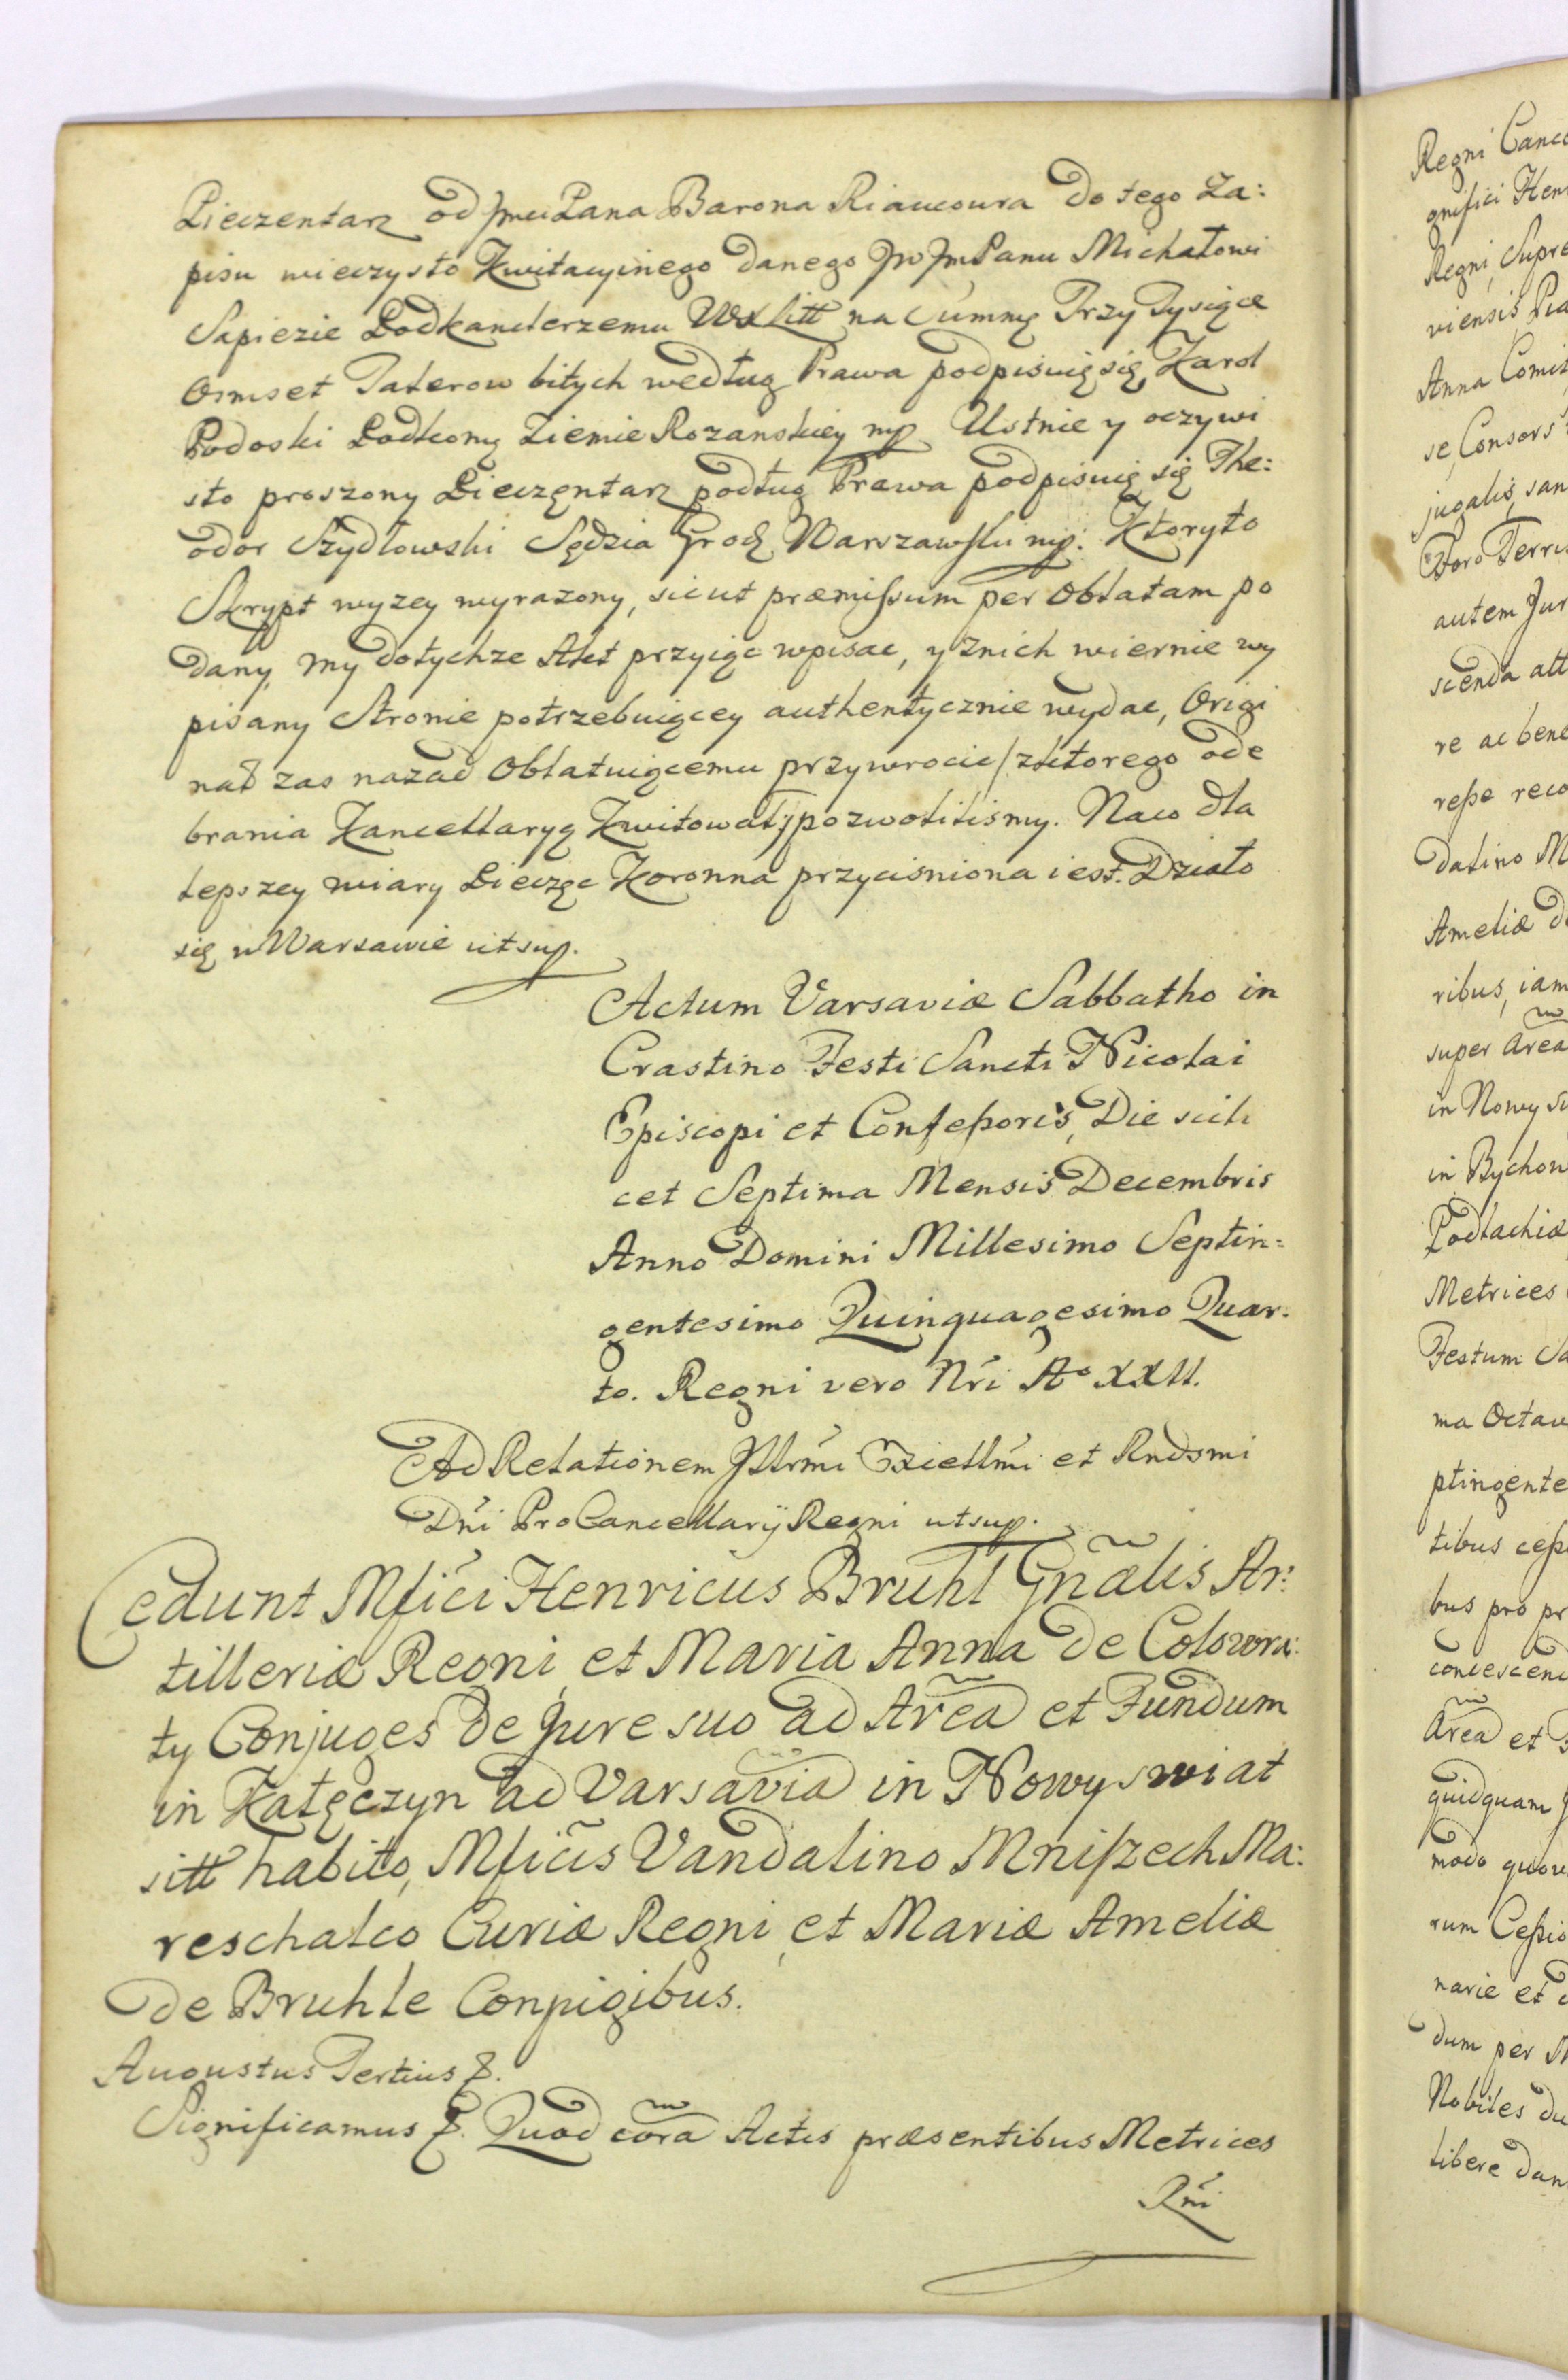 Pieczentarz od JmciPana Barona Riaucoura do tego Za:
pisu wieczysto Kwitacyinego danego JW JmPanu Michałowi
Sapiezie Podkanclerzemu WXLitt na Summę Trzy Tysiące
Osmset Talerow bitych według Prawa podpisuię się Karol
Podoski Podkomę Ziemie Rozanskiey mp Ustnie y oczywi
sto proszony Pieczętarz podług Prawa podpisuię się The:
odor Szydłowski Sędzia Grodz Warszawski mp. Ktoryto
Skrypt wyzey wyrazony, sicut præmissum per Oblatam po
dany, my dotychze Akt przyiąc wpisac, y znich wiernie wy
pisany Stronie potrzebuiącey authentycznie wydac, Origi
nał zas nazad Oblatuiącemu przywrocic/zktorego ode
brania Kancellaryą Kwitował/pozwolilismy. Naco dla
lepszey wiary Pieczęc Koronna przycisniona iest. Działo
się w Warsawie ut sup.
Actum Varsaviæ Sabbatho in
Crastino Festi Sancti Nicolai
Episcopi et Confessoris, Die scili
cet Septima Mensis Decembris
Anno Domini Millesimo Septin=
gentesimo Quinquagesimo Quar:
to. Regni vero Nri Ao XXII.
Ad Relationem Jllrmi Exicllmi et Rndsmi
Dni ProCancellarij Regni ut sup.
Cedunt Mfici Henricus Bruhl Gnãlis Ar:
tilleriæ Regni, et Maria Anna de Colowra:
ty Conjuges de Jure suo ad Area et Fundum
in Kałęczyn ad Varsavia in Nowyswiat
sitt habito, Mficis Vandalino Mniszech Ma:
reschalco Curiæ Regni, et Mariæ Ameliæ
de Bruhle Conpigibus.
Augustus Tertius &.
Significamus &. Quod cora Actis præsentibus Metrices
Rni
Regni Canc
gnifici Hen
Regni, Supre
viensis Pra
Anna Comit
se, Consors
jugalis, san
Foro Terris
autem Jur
scenda att
re ac bene
resse reco
dalino M
Ameliæ d
ribus, iam
super Area
in Nowy S
in Bychow
Podlachiæ
Metrices
Festum Sa
ma Octav
ptingente
tibus cess
bus pro pr
condescend
Area et F
quidquam J
modo quov
rum Cessio
narie et
dum per M
Nobiles Du
libere dan